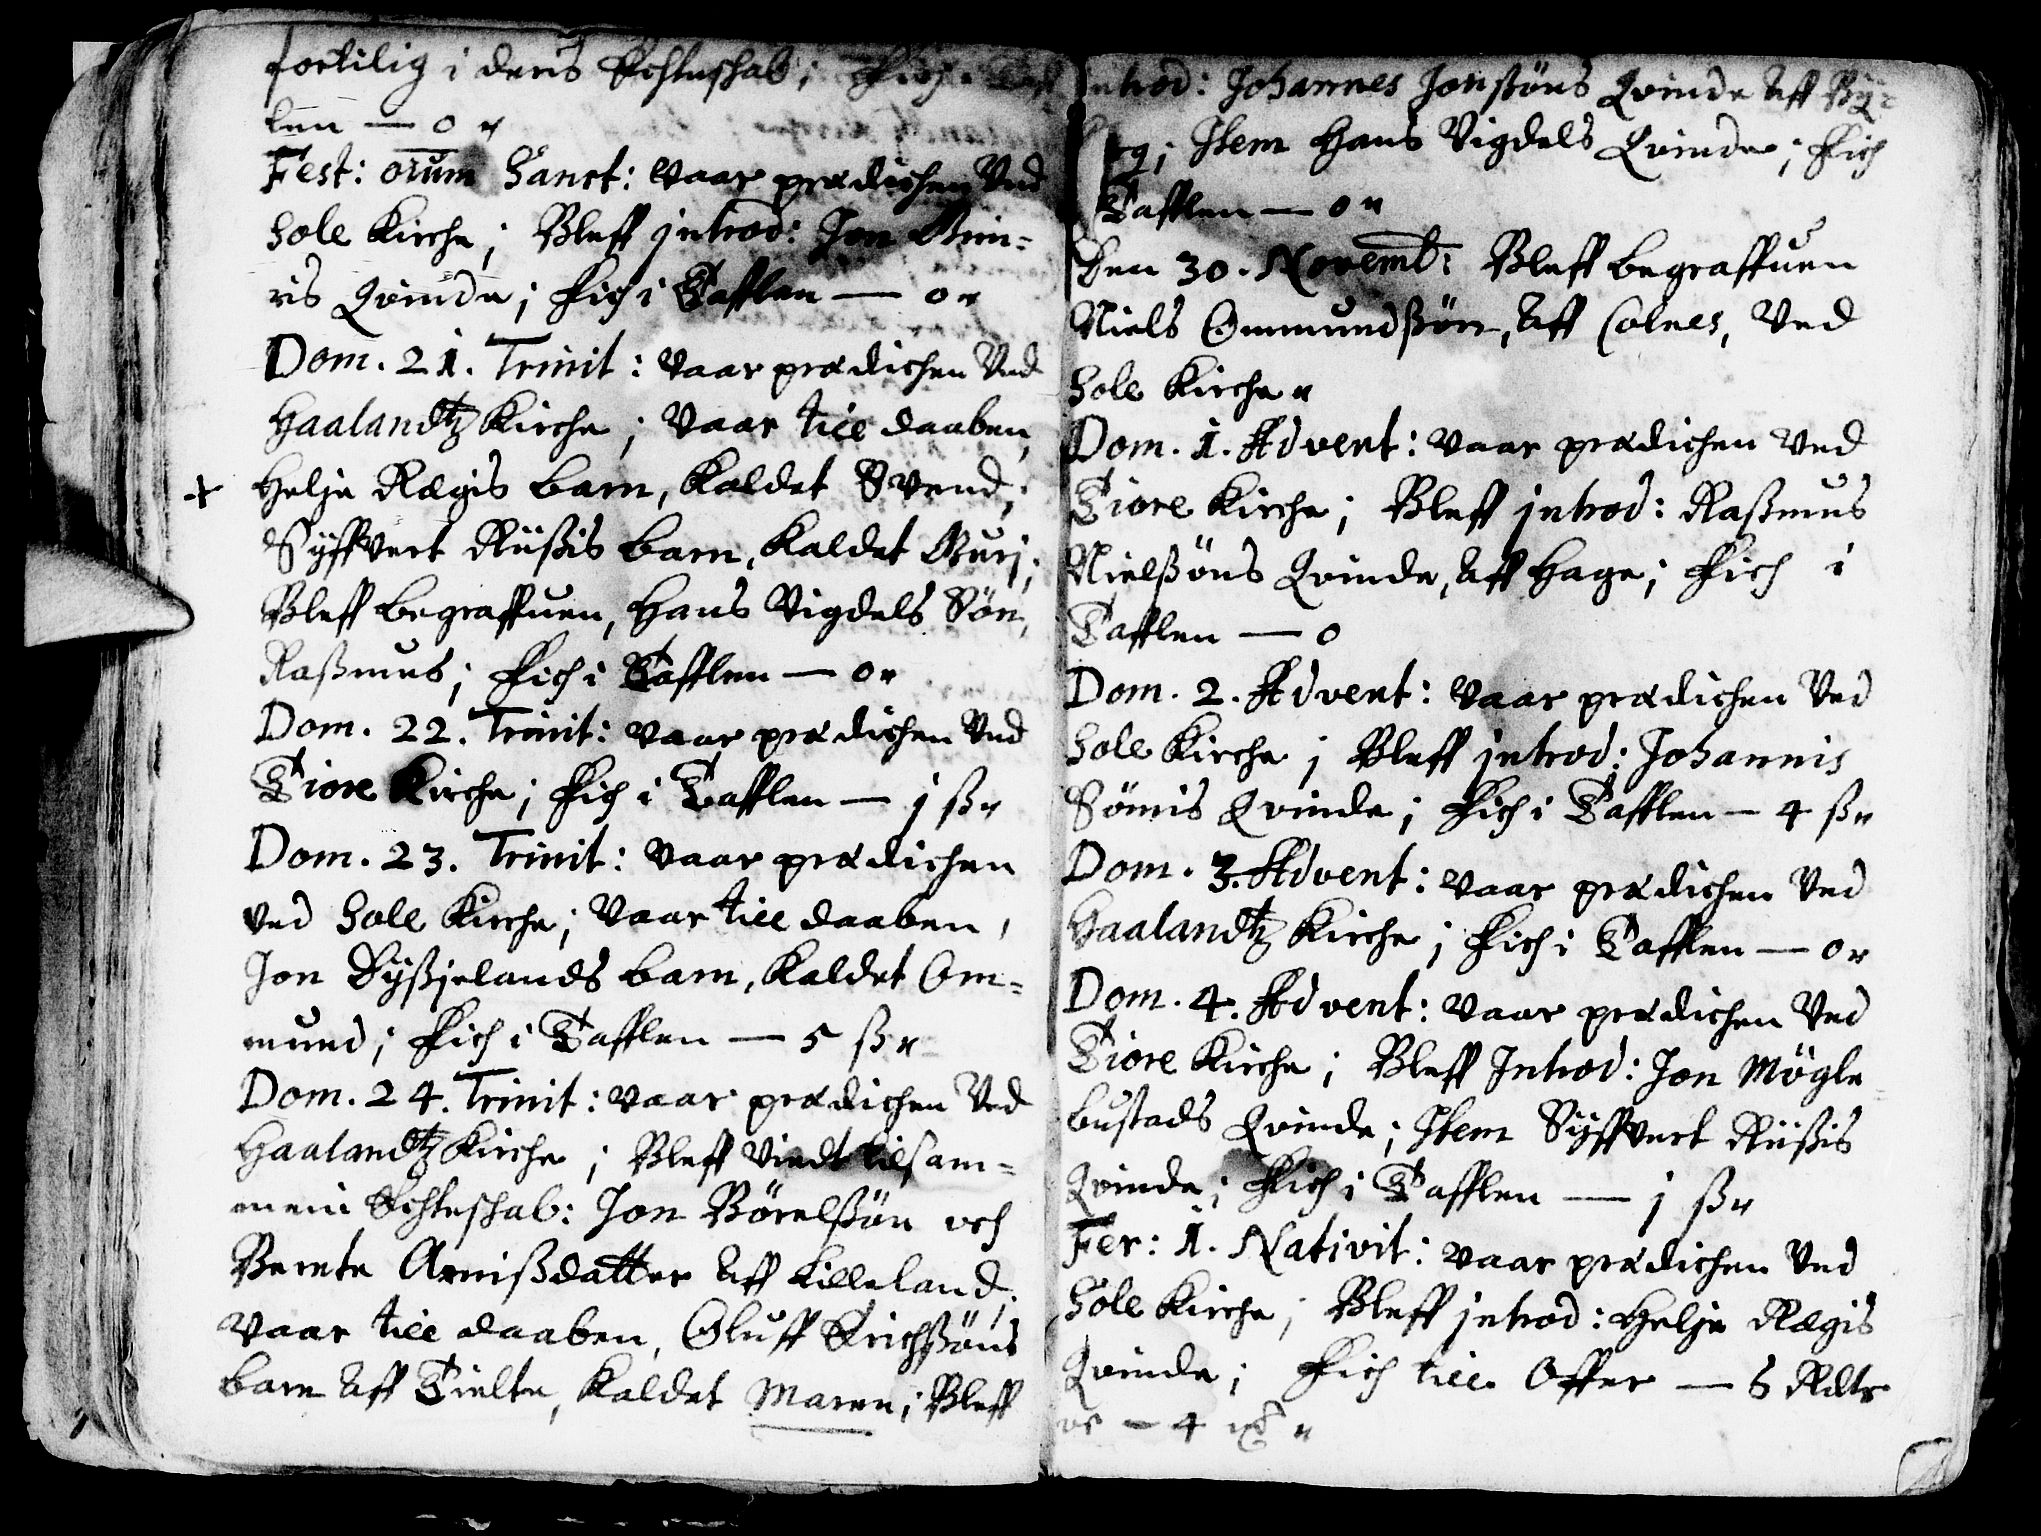 fortilig i deris Echteskab; Fich i Taff
len — 0 "
Fest: orum Sanct: Vaar prædichen Ved
Sole Kirche; Bleff introd: Jon Grin-
ris Qvinde; Fich i Tafflen — 0 "
Dom. 21. Trinit: Vaar prædichen Ved
Haalandtz Kirche; Vaar till daaben,
+ Helje Rægis barn, Kaldet Svend;
Syffvert Riißis barn, Kaldet Guri;
Bleff begraffuen, Hans Vigdels Søn,
Raßmus; Fich i Tafflen — 0 "
Dom. 22. Trinit: Vaar prædichen Ved
Tiore Kirche; Fich i Tafflen — j ß "
Dom. 23. Trinit: Vaar prædichen
Ved Sole Kirche; Vaar till daaben,
Jon Syßjelands barn, Kaldet Om-
mund; Fich i Tafflen — 5 ß "
Dom. 24. Trinit: Vaar prædichen Ved
Haalandtz Kirche; Bleff Viedt tilsam-
men i Echteskab: Jon Børelßøn och
Berete Arnißdatter Aff Killeland;
Vaar till daaben, Oluff Erichßøns
barn Aff Tielte, Kaldet Maren; Bleff
introd: Johannes Jonßøns Qvinde Aff By-
rg; Item Hans Vigdels Qvinde; Fich
Tafflen — 0 "
Den 30. Novemb: Bleff begraffuen
Niels Ommundßøn, Aff Colnes, Ved
Sole Kirche "
Dom. 1. Advent: Vaar prædichen Ved
Tiore Kirche; Bleff introd: Raßmus
Nielßøns Qvinde, Aff Hage; Fich i
Tafflen — 0
Dom. 2. Advent: Vaar prædichen Ved
Sole Kirche; Bleff introd: Johannis
Sømis Qvinde; Fich i Tafflen — 4 ß "
Dom. 3. Advent: Vaar prædichen Ved
Haalandtz Kirche; Fich i Tafflen — 0 "
Dom. 4. Advent: Vaar prædichen Ved
Tiore Kirche; Bleff Introd: Jon Møgle-
bustads Qvinde; Item Syffvert Riißis
Qvinde; Fich i Tafflen — j ß "
Fer: 1. Nativit: Vaar prædichen Ved
Sole Kirche; Bleff introd: Helje Rægis
Qvinde; Fich till Offer — 5 Rdlr
oc — 4 "